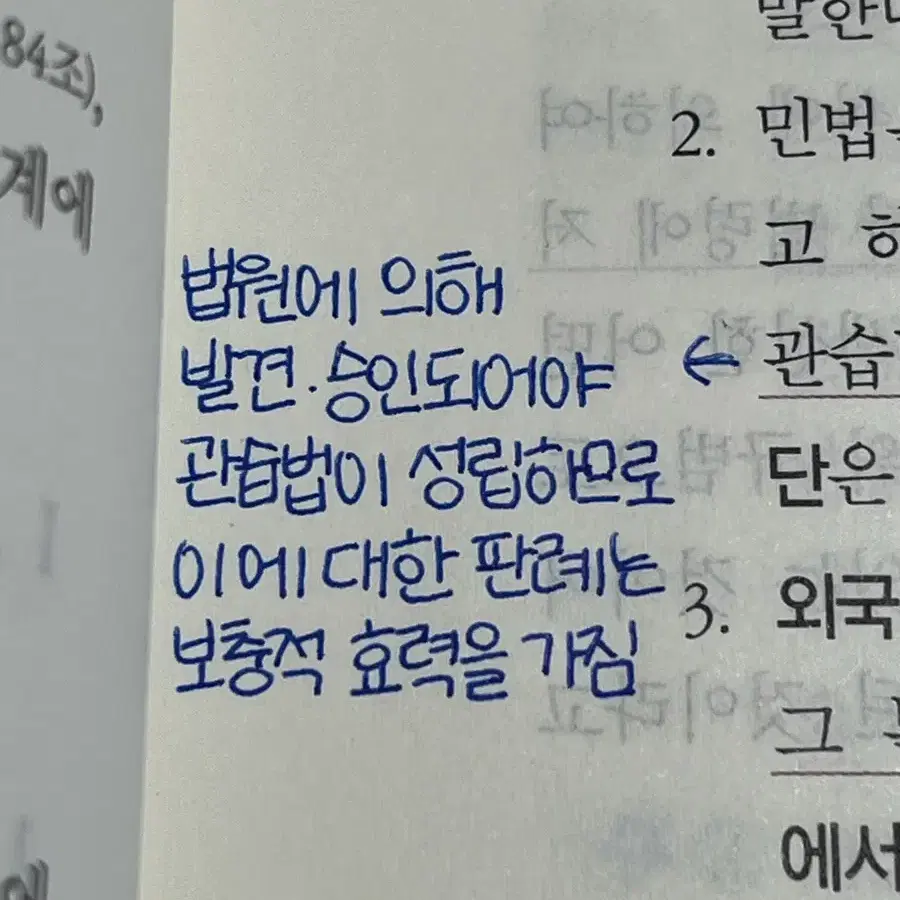 84조),
계에
법원에 의해
발견·승인되어야
관습법이 성립하므로
이에 대한 판례는
보충적 효력을 가짐
←
말한
2. 민법
고
관습
단은
3. 외국
그
에서
에